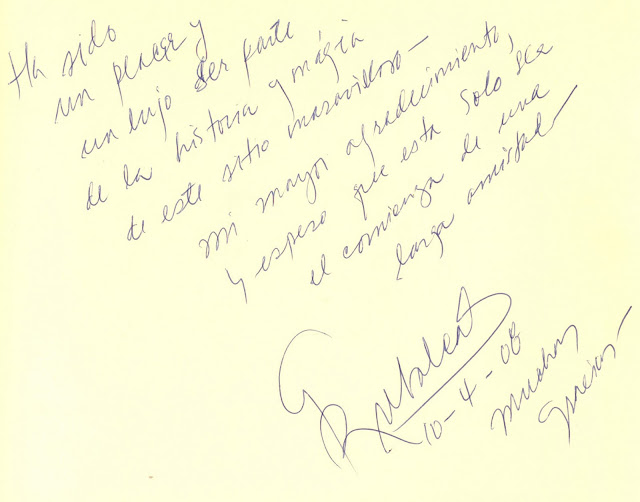 Ha sido
un placer y
un lujo ser parte
de la historia y mágia
de este sitio maravilloso –
Mi mayor agradecimiento,
y espero que esta solo sea
el comienzo de una
larga amistad –
10-4-08
Muchas
gracias –